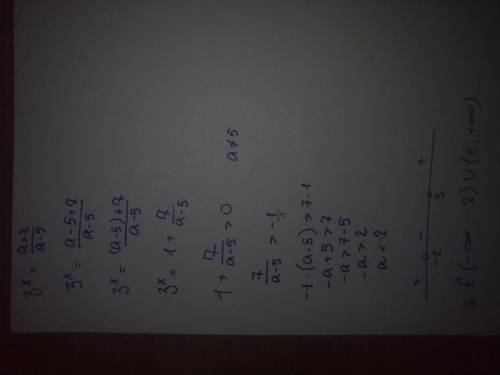 3^x = (a+2)/(a-5)
3^x = (a-5+7)/(a-5)
3^x = ((a-5)+7)/(a-5)
3^x = 1 + 7/(a-5)
1 + 7/(a-5) > 0   a≠5
7/(a-5) > -1/1
-1·(a-5) > 7·1
-a+5 > 7
-a > 7-5
-a > 2
a < -2
+ - +
-2 5
a ∈ (-∞; -2) ∪ (5; +∞)